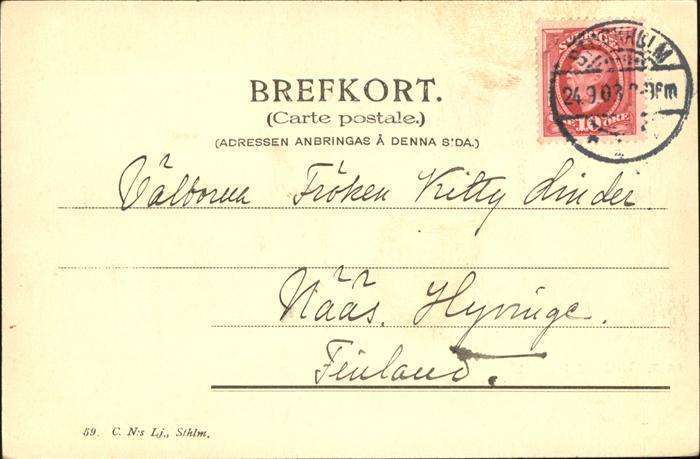 BREFKORT.
(Carte postale.)
(ADRESSEN ANBRINGAS Å DENNA SIDA.)
SVERIGE
10 ÖRE
STOCKHOLM
24.9.03
Välborna Fröken Kitty Linder
Nääs. Hyvinge.
Finland.
59. C. N:s Lj., Sthlm.